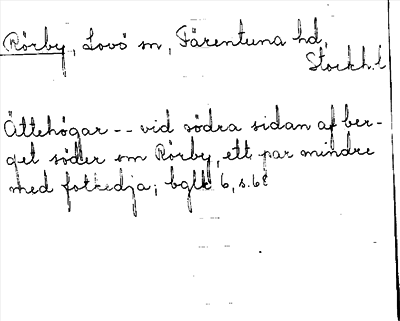 Rörby, Lovö sn, Färentuna hd,
Stockh. l
Ättehögar -- vid södra sidan af ber-
get söder om Rörby, ett par mindre
med fotkedja; bglk 6, s. 68